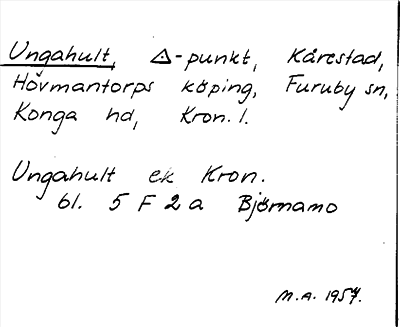 Ungahult, △-punkt, Kårestad,
Hovmantorps köping, Furuby sn,
Konga hd, Kron. l.
Ungahult ek Kron.
bl. 5 F 2 a Björnamo
M.A. 1957.